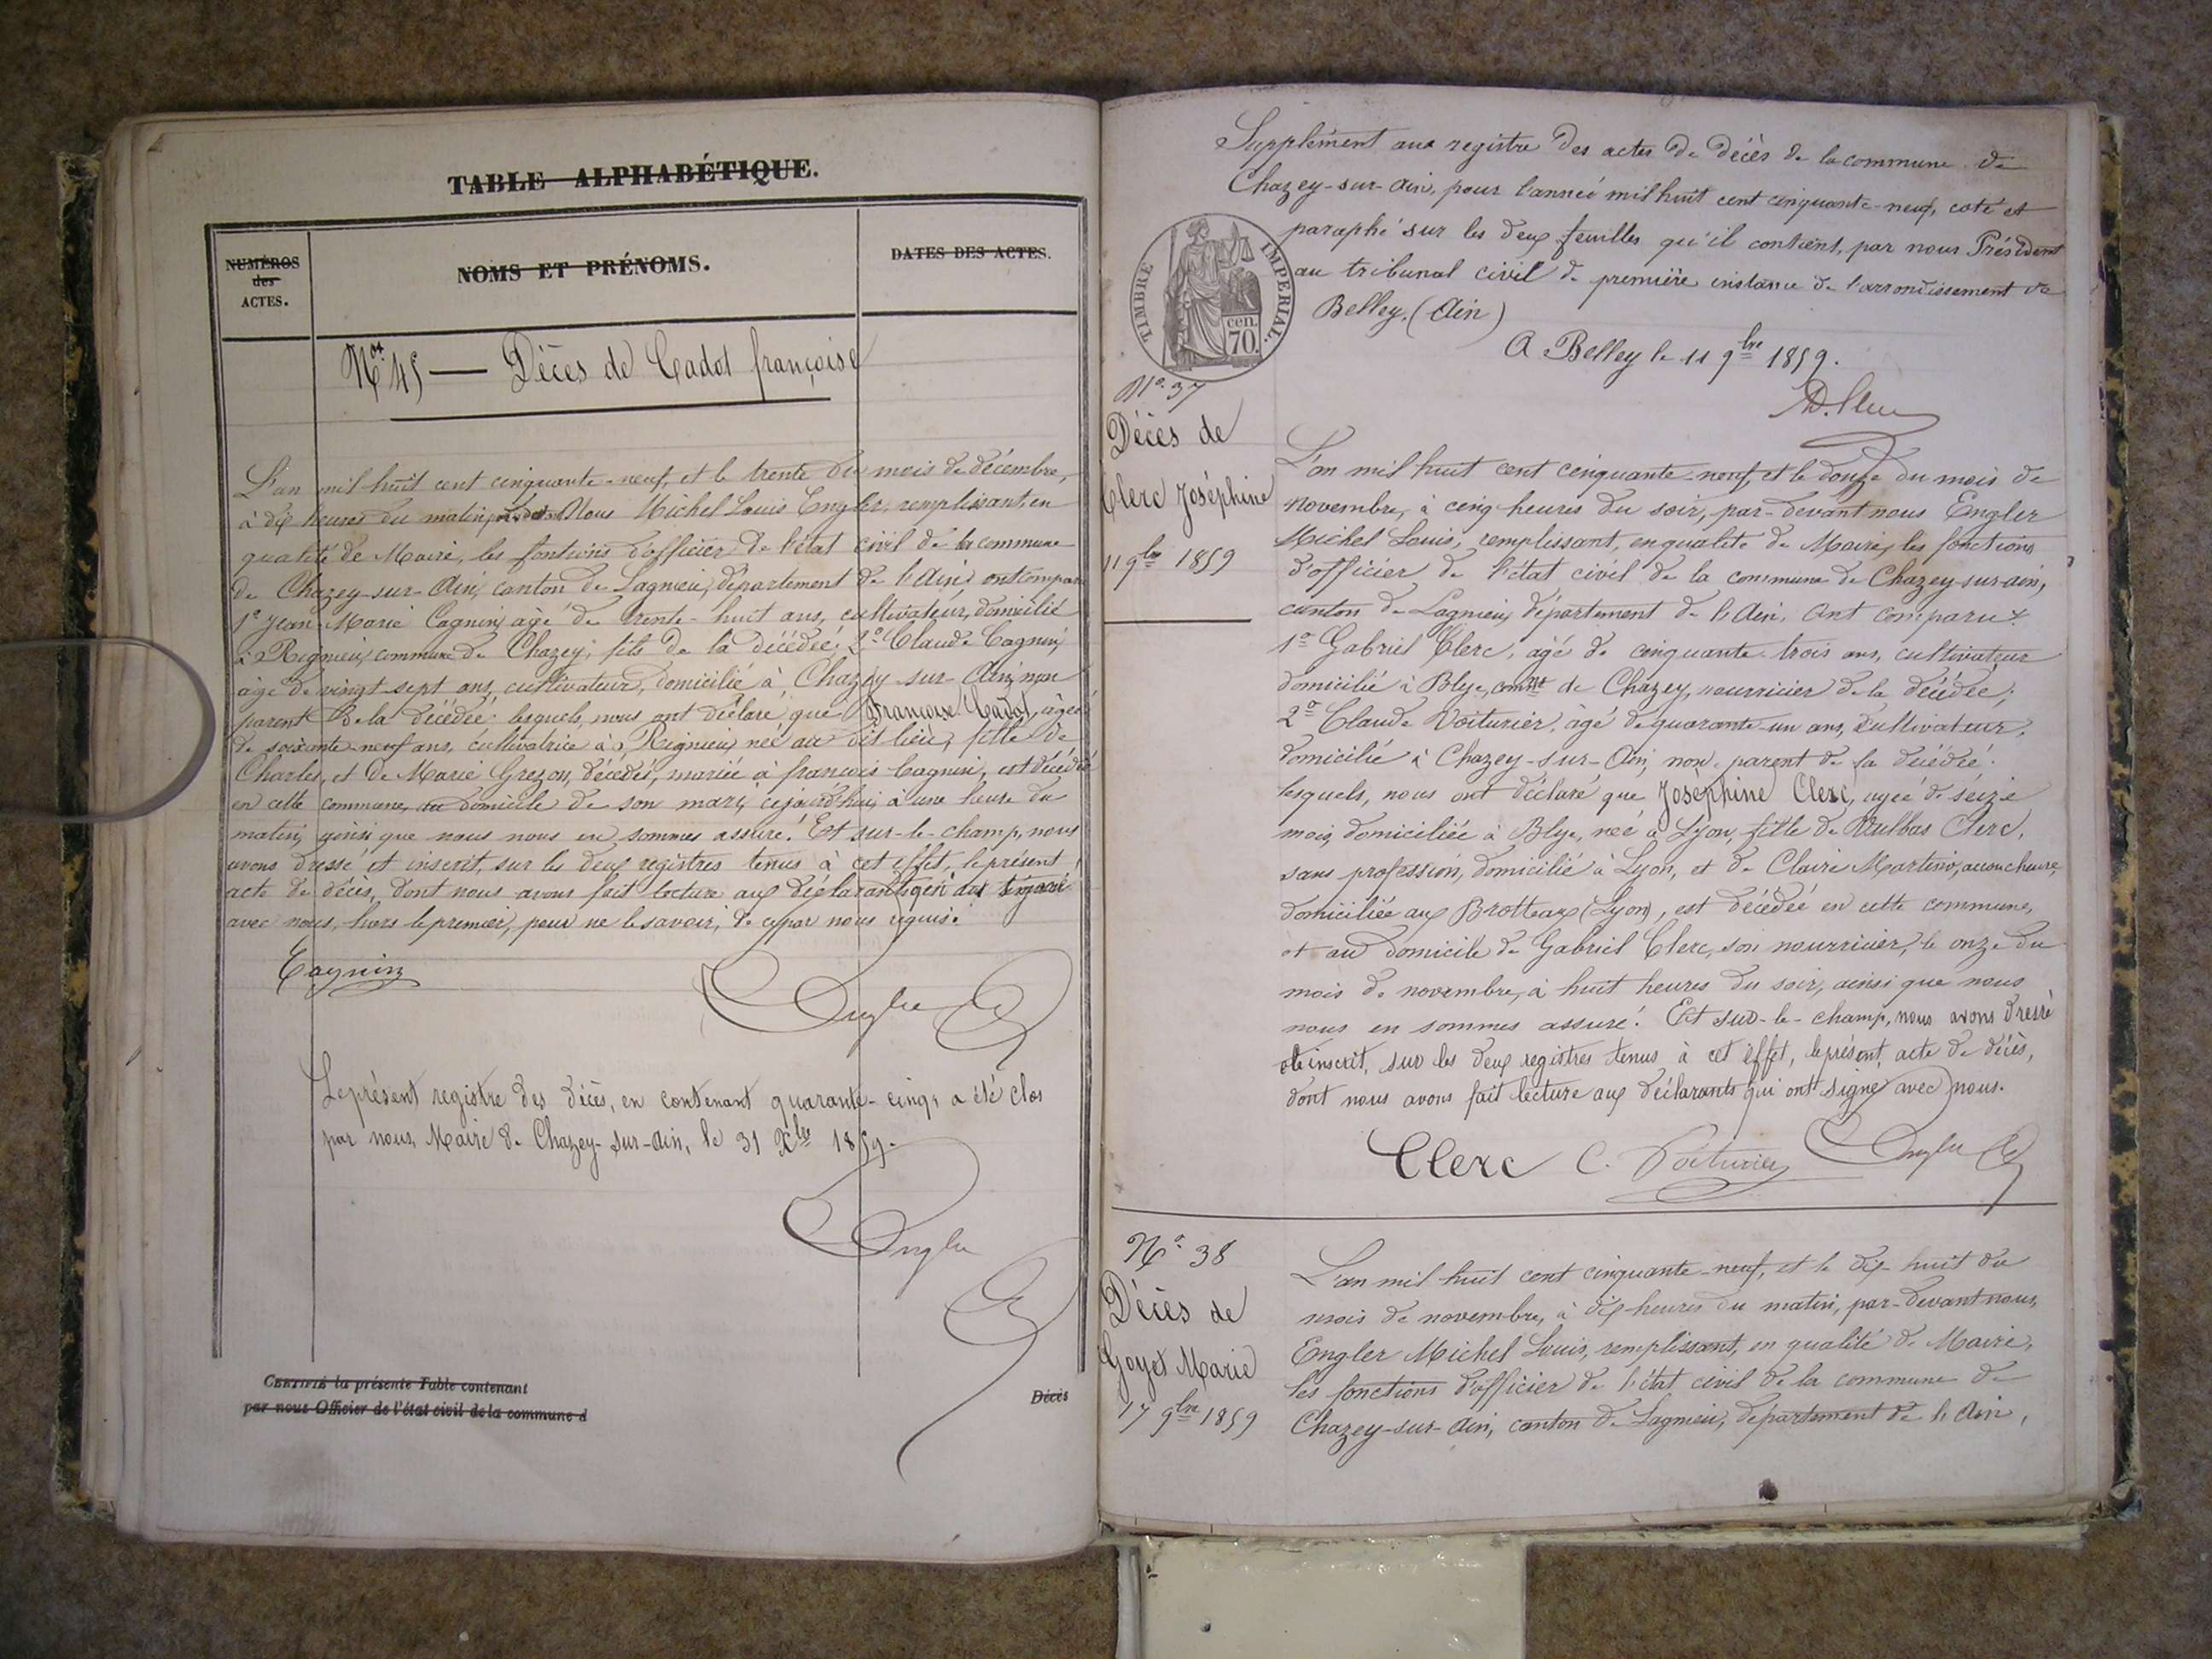 TABLE ALPHABÉTIQUE.
NUMÉROS
des
ACTES.
NOMS ET PRÉNOMS.
DATES DES ACTES.
Not. 45 — Décès de Cadot françoise
L'an mil-huit cent cinquante-neuf, et le trente du mois de décembre,
à dix heures du matin, Nous Michel Louis Engler, remplissant, en
qualité de Maire, les fontions d'officier de l'état civil de la commune
de Chazey-sur-Ain, canton de Lagnieu, département de l'Ain, ont compar
1º Jean-Marie Cagnin, âgé de trente-huit ans, cultivateur, domicilié
à Rignieu, commune de Chazey, fils de la décédée; 2º Claude Cagnin,
âgé de vingt-sept ans, cultivateur, domicilié à Chazey-sur-Ain, non
parent de la décédée: lesquels, nous ont déclaré que Françoise Cadot, âgée
de soixante-neuf ans, cultivatrice à Rignieu, née au dit lieu, fille de
Charles, et de Marie Grezon, décédés, mariée à françois Cagnin, est décédée
en cette commune, au domicile de son mari, cejourd'hui, à une heure du
matin, ainsi que nous nous en sommes assuré. Et sur-le-champ, nous
avons dressé et inscrit, sur les deux registres tenus à cet effet, le présent
acte de décès, dont nous avons fait lecture aux déclarants qui ont signé
avec nous, hors le premier, pour ne le savoir, de ce par nous requis.
Cagnin
Engler
Le présent registre des décès, en contenant quarante-cinq, a été clos
par nous, Maire de Chazey-sur-Ain, le 31 Xbre 1859.
Engler
CERTIFIÉ la présente Table contenant
par nous Officier de l'état civil de la commune d
Décès
Supplément aux registre des actes de décès de la commune de
Chazey-sur-Ain, pour l'année mil huit cent cinquante-neuf, coté et
paraphé sur les deux feuilles qu'il contient, par nous Président
au tribunal civil de première instance de l'arrondissement de
Belley. (Ain)
TIMBRE IMPERIAL.
cen.
70.
A Belley le 11 9bre 1859.
Nº 37
Décès de
Clerc Joséphine
11 9bre 1859
L'an mil huit cent cinquante-neuf, et le douze du mois de
novembre, à cinq heures du soir, par-devant nous Engler
Michel Louis, remplissant, en qualité de Maire, les fonctions
d'officier de l'état civil de la commune de Chazey-sur-ain,
canton de Lagnieu, département de l'Ain, Ont comparu:
1º Gabriel Clerc, âgé de cinquante-trois ans, cultivateur
domicilié à Blye, comne de Chazey, nourricier de la décédée;
2º Claude Voiturier, âgé de quarante-un ans, cultivateur,
domicilié à Chazey-sur-Ain, non parent de la décédée:
lesquels, nous ont déclaré que Joséphine Clerc, agée de seize
mois, domiciliée à Blye, née à Lyon, fille de Vulbas Clerc,
sans profession, domicilié à Lyon, et de Claire Martino, accoucheuse,
domiciliée aux Brotteaux (Lyon), est décédée en cette commune,
et au domicile de Gabriel Clerc, son nourricier, le onze du
mois de novembre, à huit heures du soir, ainsi que nous
nous en sommes assuré. Et sur-le-champ, nous avons dressé
et inscrit, sur les deux registres tenus à cet effet, le présent acte de décès,
dont nous avons fait lecture aux déclarants qui ont signé avec nous.
Clerc C. Voiturier Engler
Nº 38
Décès de
Goyet Marie
17 9bre 1859
L'an mil huit cent cinquante-neuf, et le dix-huit du
mois de novembre, à dix heures du matin, par-devant nous,
Engler Michel Louis, remplissant, en qualité de Maire,
les fonctions d'officier de l'état civil de la commune de
Chazey-sur-Ain, canton de Lagnieu, département de l'Ain,